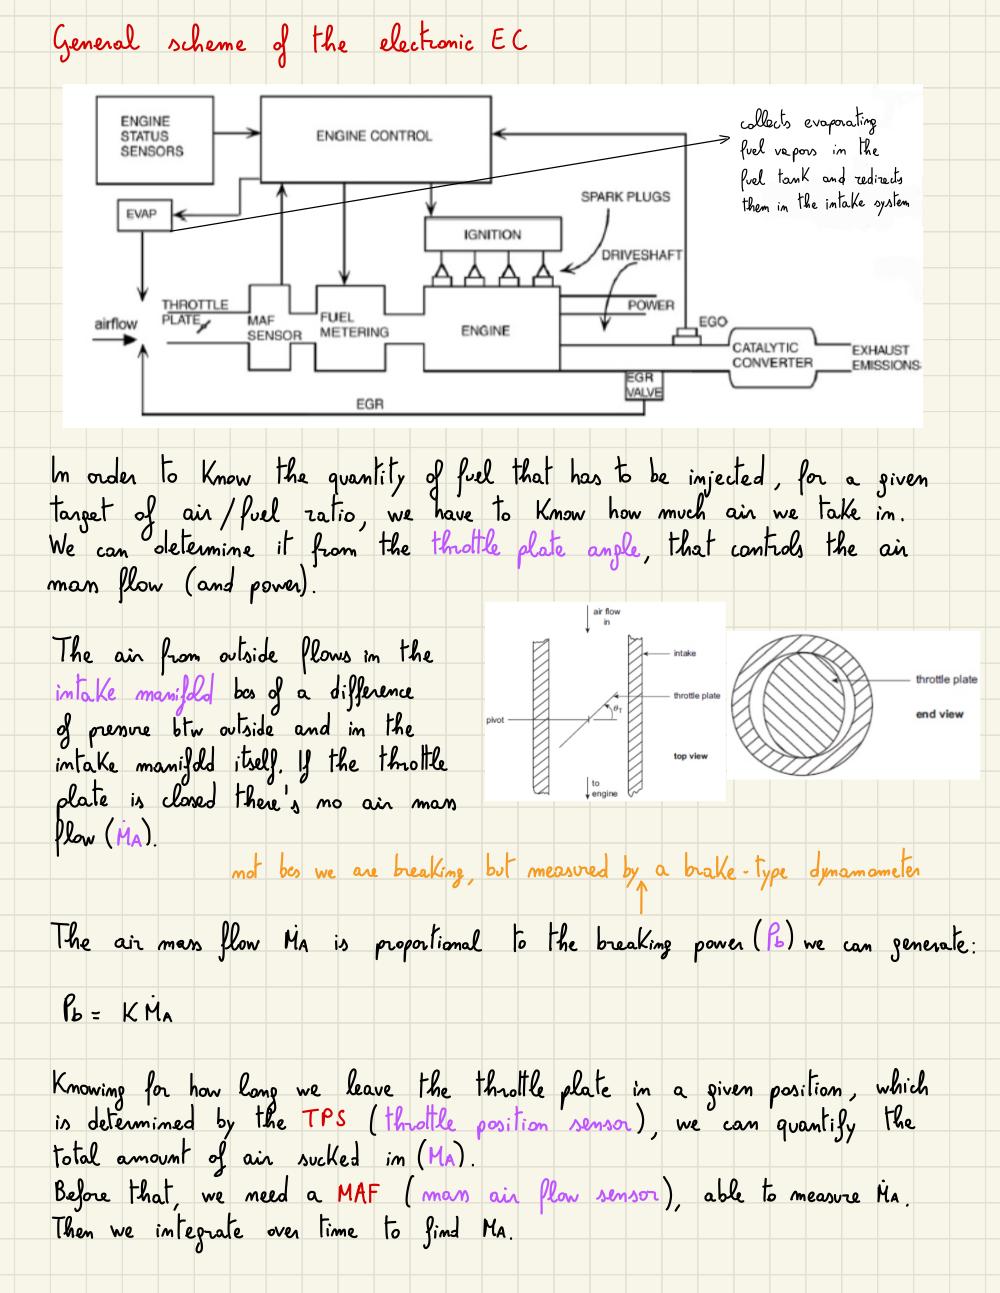 General scheme of the electronic EC
ENGINE
STATUS
SENSORS
ENGINE CONTROL
collects evaporating
fuel vapors in the
fuel tank and redirects
them in the intake system
EVAP
SPARK PLUGS
IGNITION
DRIVESHAFT
THROTTLE
PLATE
airflow
MAF
SENSOR
FUEL
METERING
ENGINE
POWER
EGO
CATALYTIC
CONVERTER
EXHAUST
EMISSIONS
EGR
VALVE
EGR
In order to know the quantity of fuel that has to be injected, for a given
target of air/fuel ratio, we have to know how much air we take in.
We can determine it from the throttle plate angle, that controls the air
mass flow (and power).
The air from outside flows in the
intake manifold bcs of a difference
of pressure btw outside and in the
intake manifold itself. If the throttle
plate is closed there's no air mass
flow (ṀA).
air flow
in
intake
throttle plate
θT
pivot
top view
to
engine
throttle plate
end view
not bcs we are breaking, but measured by a brake-type dynamometer
The air mass flow ṀA is proportional to the breaking power (Pb) we can generate:
Pb = K ṀA
Knowing for how long we leave the throttle plate in a given position, which
is determined by the TPS (throttle position sensor), we can quantify the
total amount of air sucked in (MA).
Before that, we need a MAF (mass air flow sensor), able to measure ṀA.
Then we integrate over time to find MA.